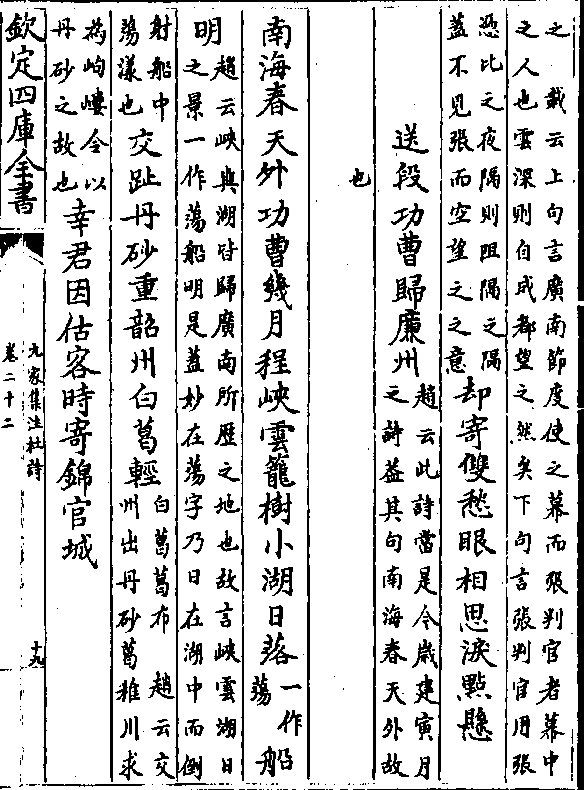 之　載云上句言廣南節度使之幕而張判官者幕中
之人也雲深則自成都望之然矣下句言張判官用張
憑比之夜隔則阻隔之隔
蓋不見張而空望之之意
却寄雙愁眼相思淚點懸
送段功曹歸廉州
趙云此詩當是今歲建寅月
之詩蓋其句南海春天外故
也
南海春天外功曹幾月程峽雲籠樹小湖日落
一作
蕩
船
明
趙云峽與湖皆歸廣南所歴之地也故言峽雲湖日
之景一作蕩船明是蓋妙在蕩字乃日在湖中而倒
射船中
蕩漾也
交趾丹砂重韶州白葛輕
白葛葛布　趙云交
州出丹砂葛稚川求
為岣嶁令以
丹砂之故也
幸君因估客時寄錦官城
欽定四庫全書
九家集注杜詩
卷二十二
十九